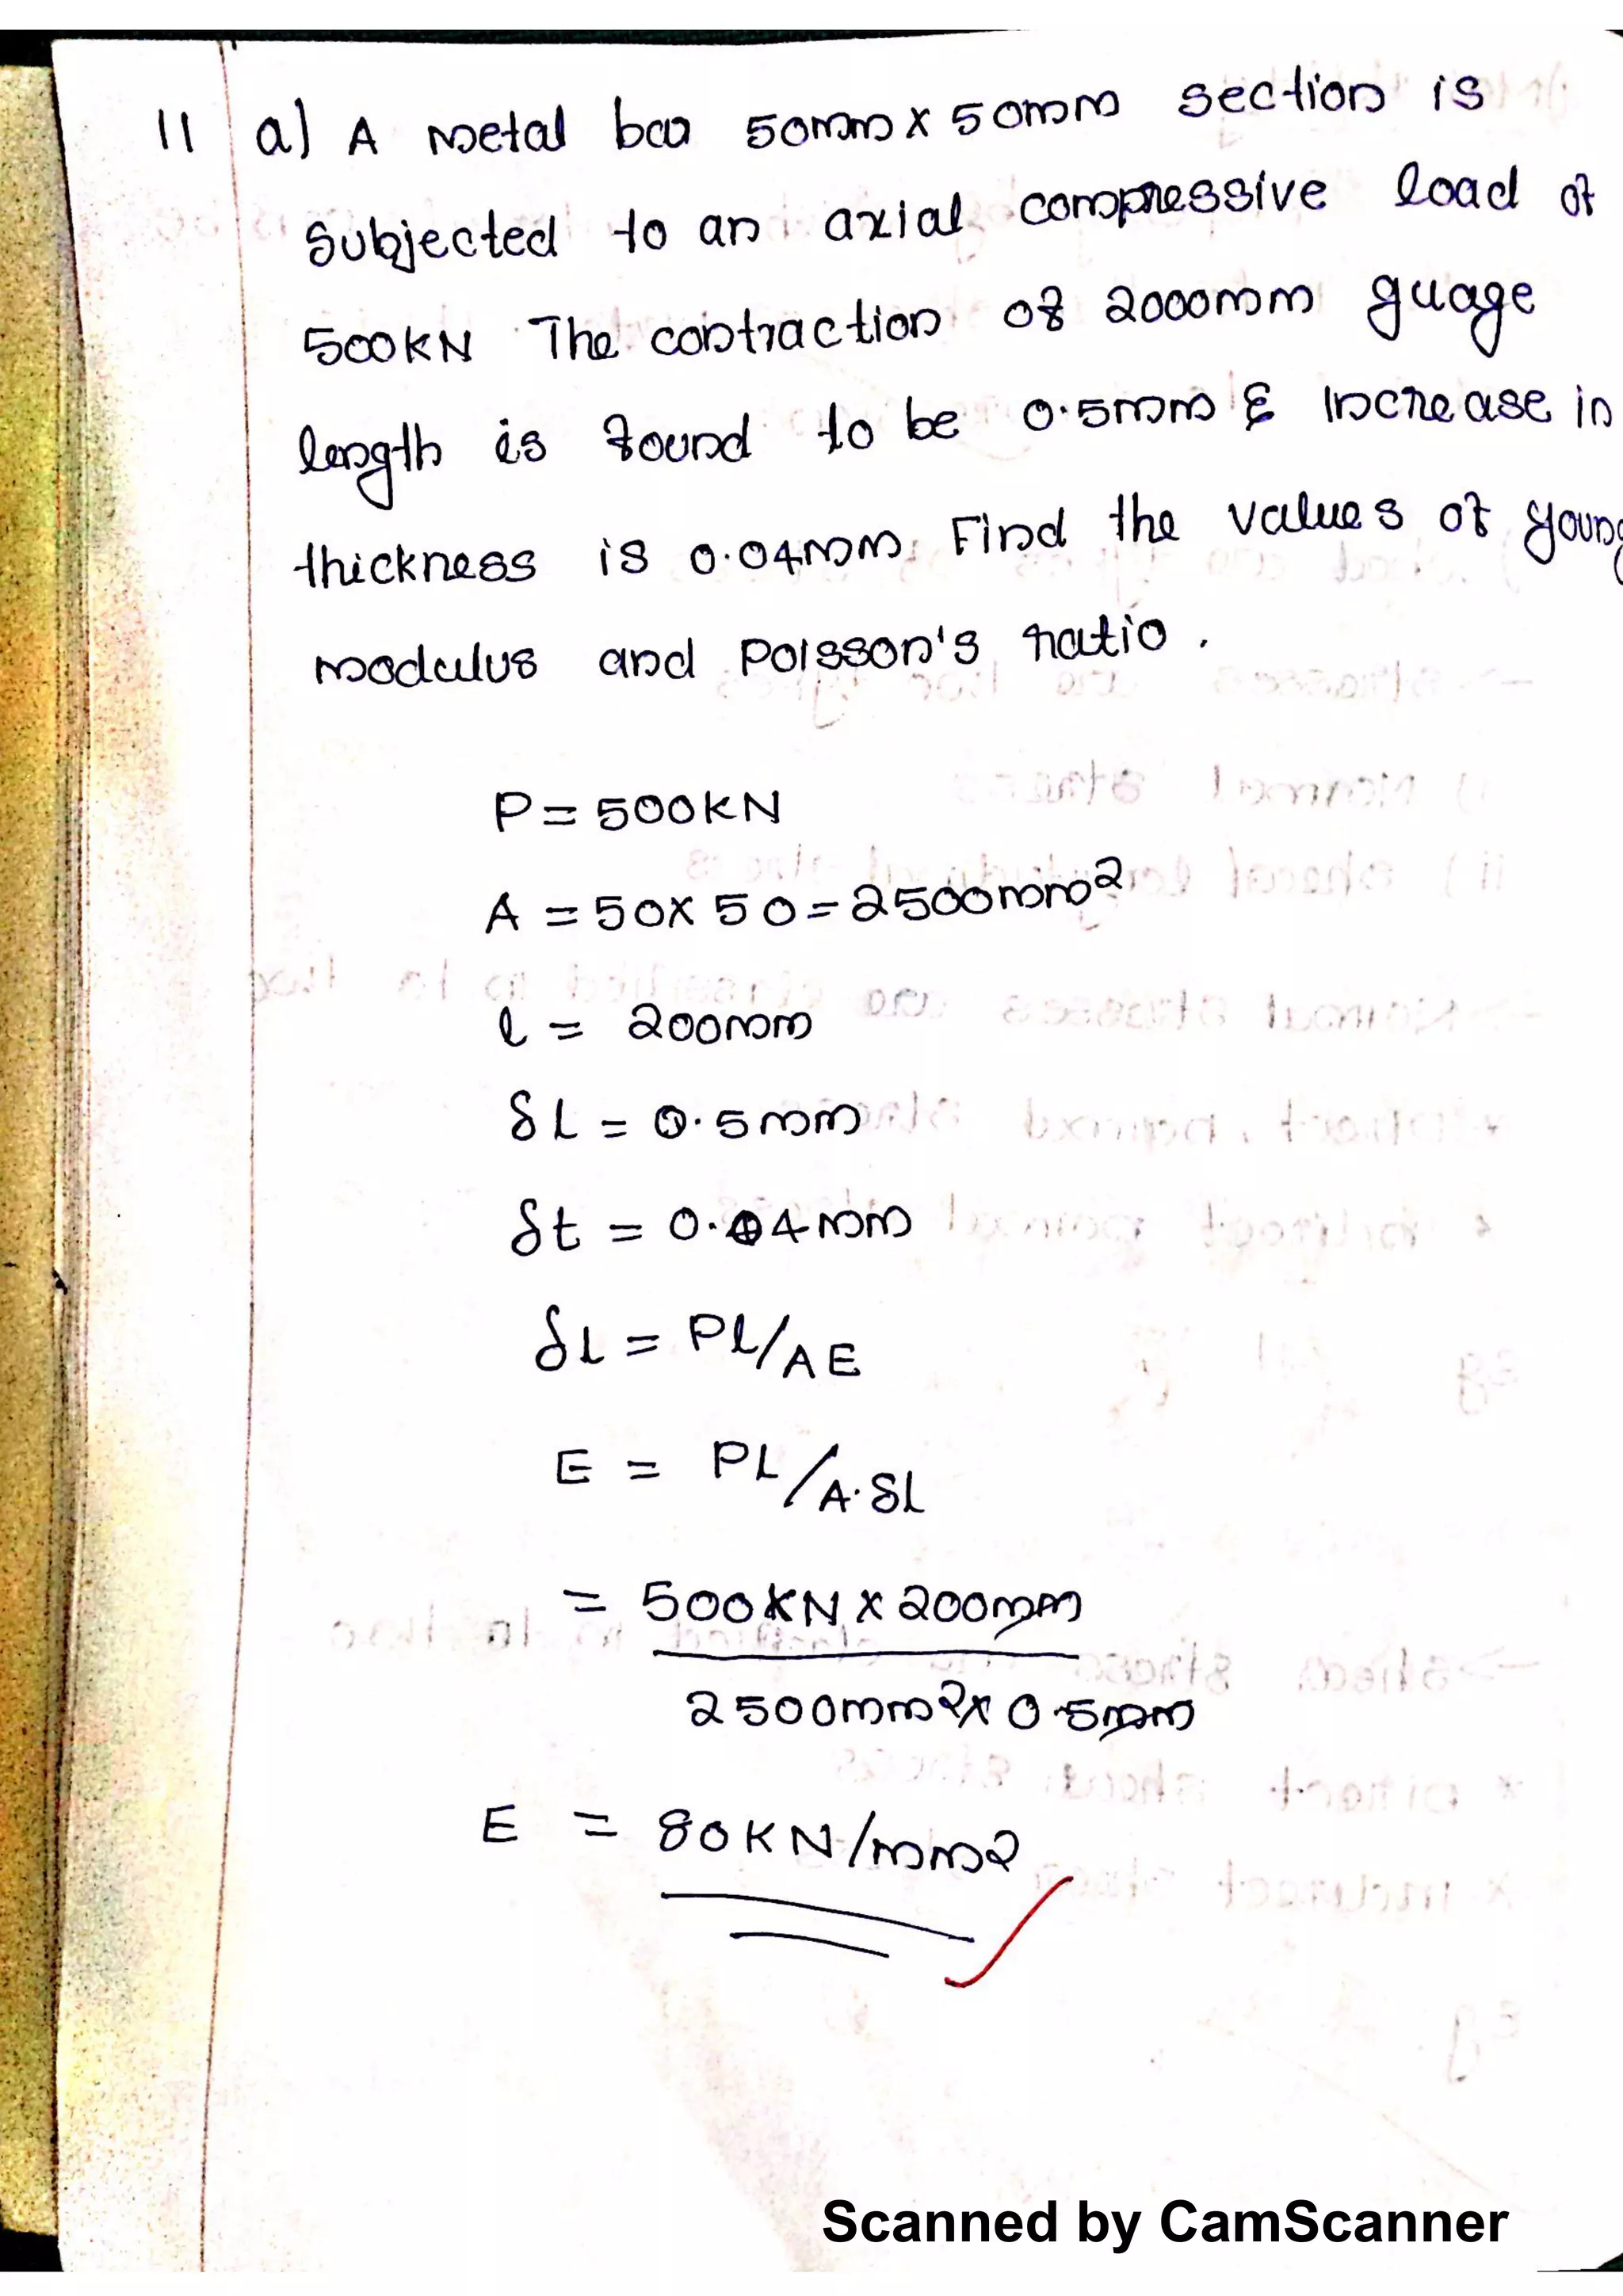 11 a) A metal bar 50mm x 50mm section is
subjected to an axial compressive load of
500KN The contraction of 2000mm guage
length is found to be 0.5mm & Increase in
thickness is 0.04mm. Find the values of young
modulus and Poisson's ratio.
P = 500KN
A = 50x50 = 2500mm²
l = 200mm
δL = 0.5mm
δt = 0.04mm
δL = Pl/AE
E = PL/A.δL
= 500KN x 200mm
2500mm² x 0.5mm
E = 80KN/mm2
Scanned by CamScanner